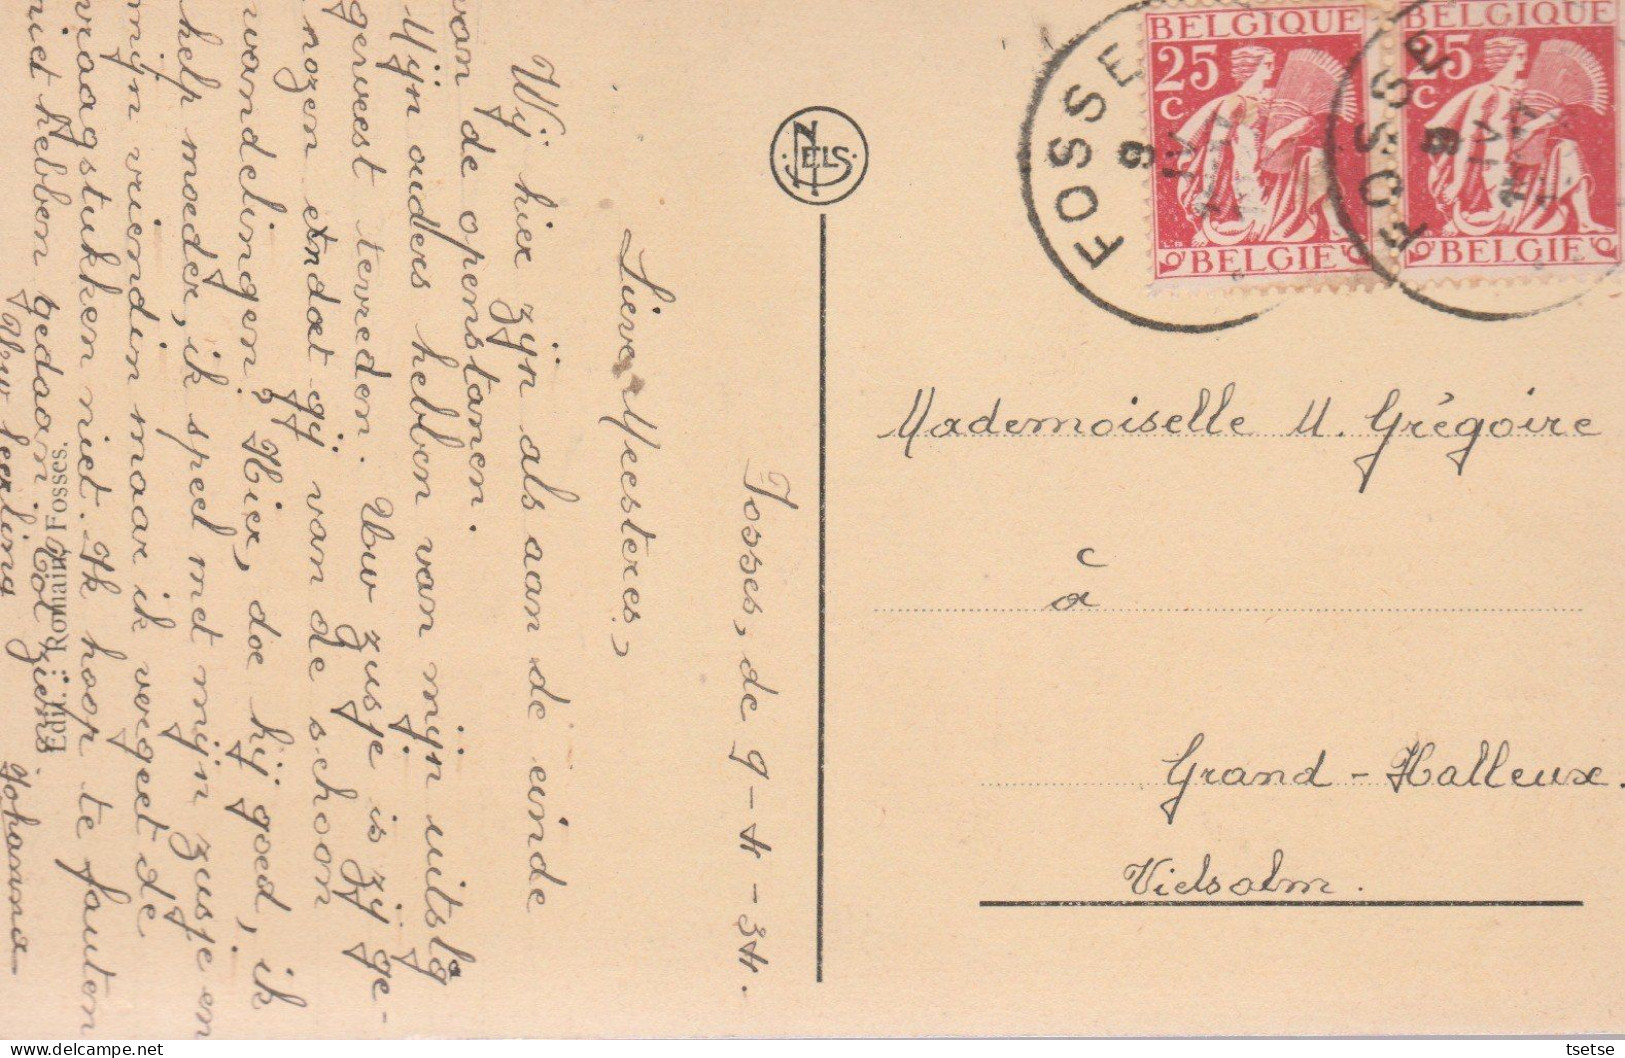 Fosses, de 9-4-34.
Lieve Meesteres,
Wij hier zijn als aan de einde
van de openstanen.
Mijn ouders hebben van mijn uitslg
geweest tevreden. Uw zusje is zij ge-
nozen endat gij van de schoon
wandelingen? Hier, doe hij goed, ik
help moeder, ik speel met mijn zusje en
mijn vriendin maar ik vergeet de
vraagstukken niet. Ik hoop te fauten
niet hebben gedaan. Tot ziens.
Uw leerling
Johanna
Edit. : Romain, Fosses.
NELS
BELGIQUE
25
C
BELGIE
BELGIQUE
25
C
BELGIE
FOSSE
FOSSE
Mademoiselle M. Grégoire
à
Grand-Halleux.
Vielsalm.
tsetse